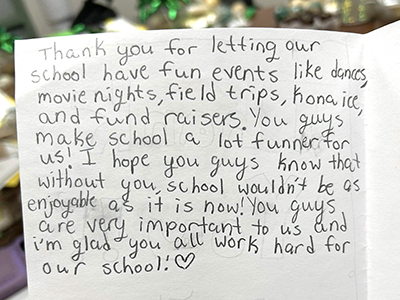 Thank you for letting our
school have fun events like dances,
movie nights, field trips, kona ice,
and fund raisers. You guys
make school a lot funner for
us! I hope you guys know that
without you, school wouldn't be as
enjoyable as it is now! You guys
are very important to us and
i'm glad you all work hard for
our school! ♡